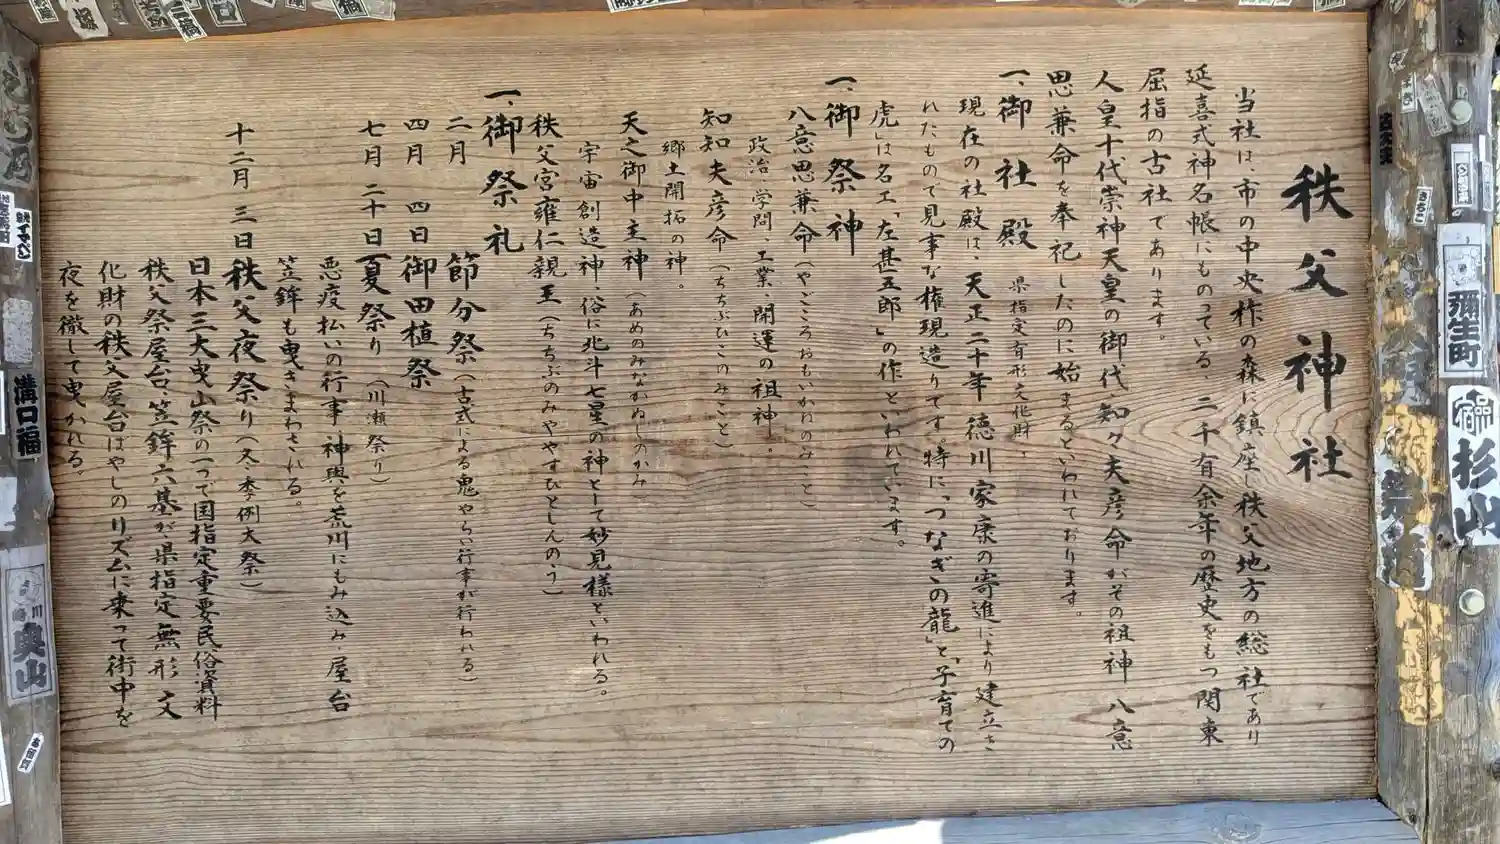 秩父神社
当社は、市の中央柞の森に鎮座し秩父地方の総社であり
延喜式神名帳にものっている 二千有余年の歴史をもつ関東
屈指の古社であります。
人皇十代崇神天皇の御代、知々夫彦命がその祖神 八意
思兼命を奉祀したのに始まるといわれております。
一、御社殿 県指定有形文化財.
現在の社殿は、天正二十年 徳川家康の寄進により建立さ
れたもので見事な権現造りです。特に「つなぎの龍」と、「子育ての
虎」は名工「左甚五郎」の作といわれています。
一、御祭神
八意思兼命(やごころおもいかねのみこと)
政治、学問、工業、開運の祖神.
知知夫彦命(ちちぶひこのみこと)
郷土開拓の神。
天之御中主神(あめのみなかぬしのかみ
宇宙創造神、俗に北斗七星の神として妙見様といわれる。
秩父宮雍仁親王(ちちぶのみややすひとしんのう)
一、御祭礼
二月 節分祭(古式による鬼やらい行事が行われる)
四月 四日御田植祭
七月 二十日夏祭り(川瀬祭り)
悪疫払いの行事、神輿を荒川にもみ込み、屋台
笠鉾も曳きまわされる。
十二月 三日秩父夜祭り(冬季例大祭)
日本三大曳山祭の一つで国指定重要民俗資料
秩父祭屋台、笠鉾六基が、県指定無形文
化財の秩父屋台ばやしのリズムに乗って街中を
夜を徹して曳かれる。
彌生町
杉山
溝口福
奥山